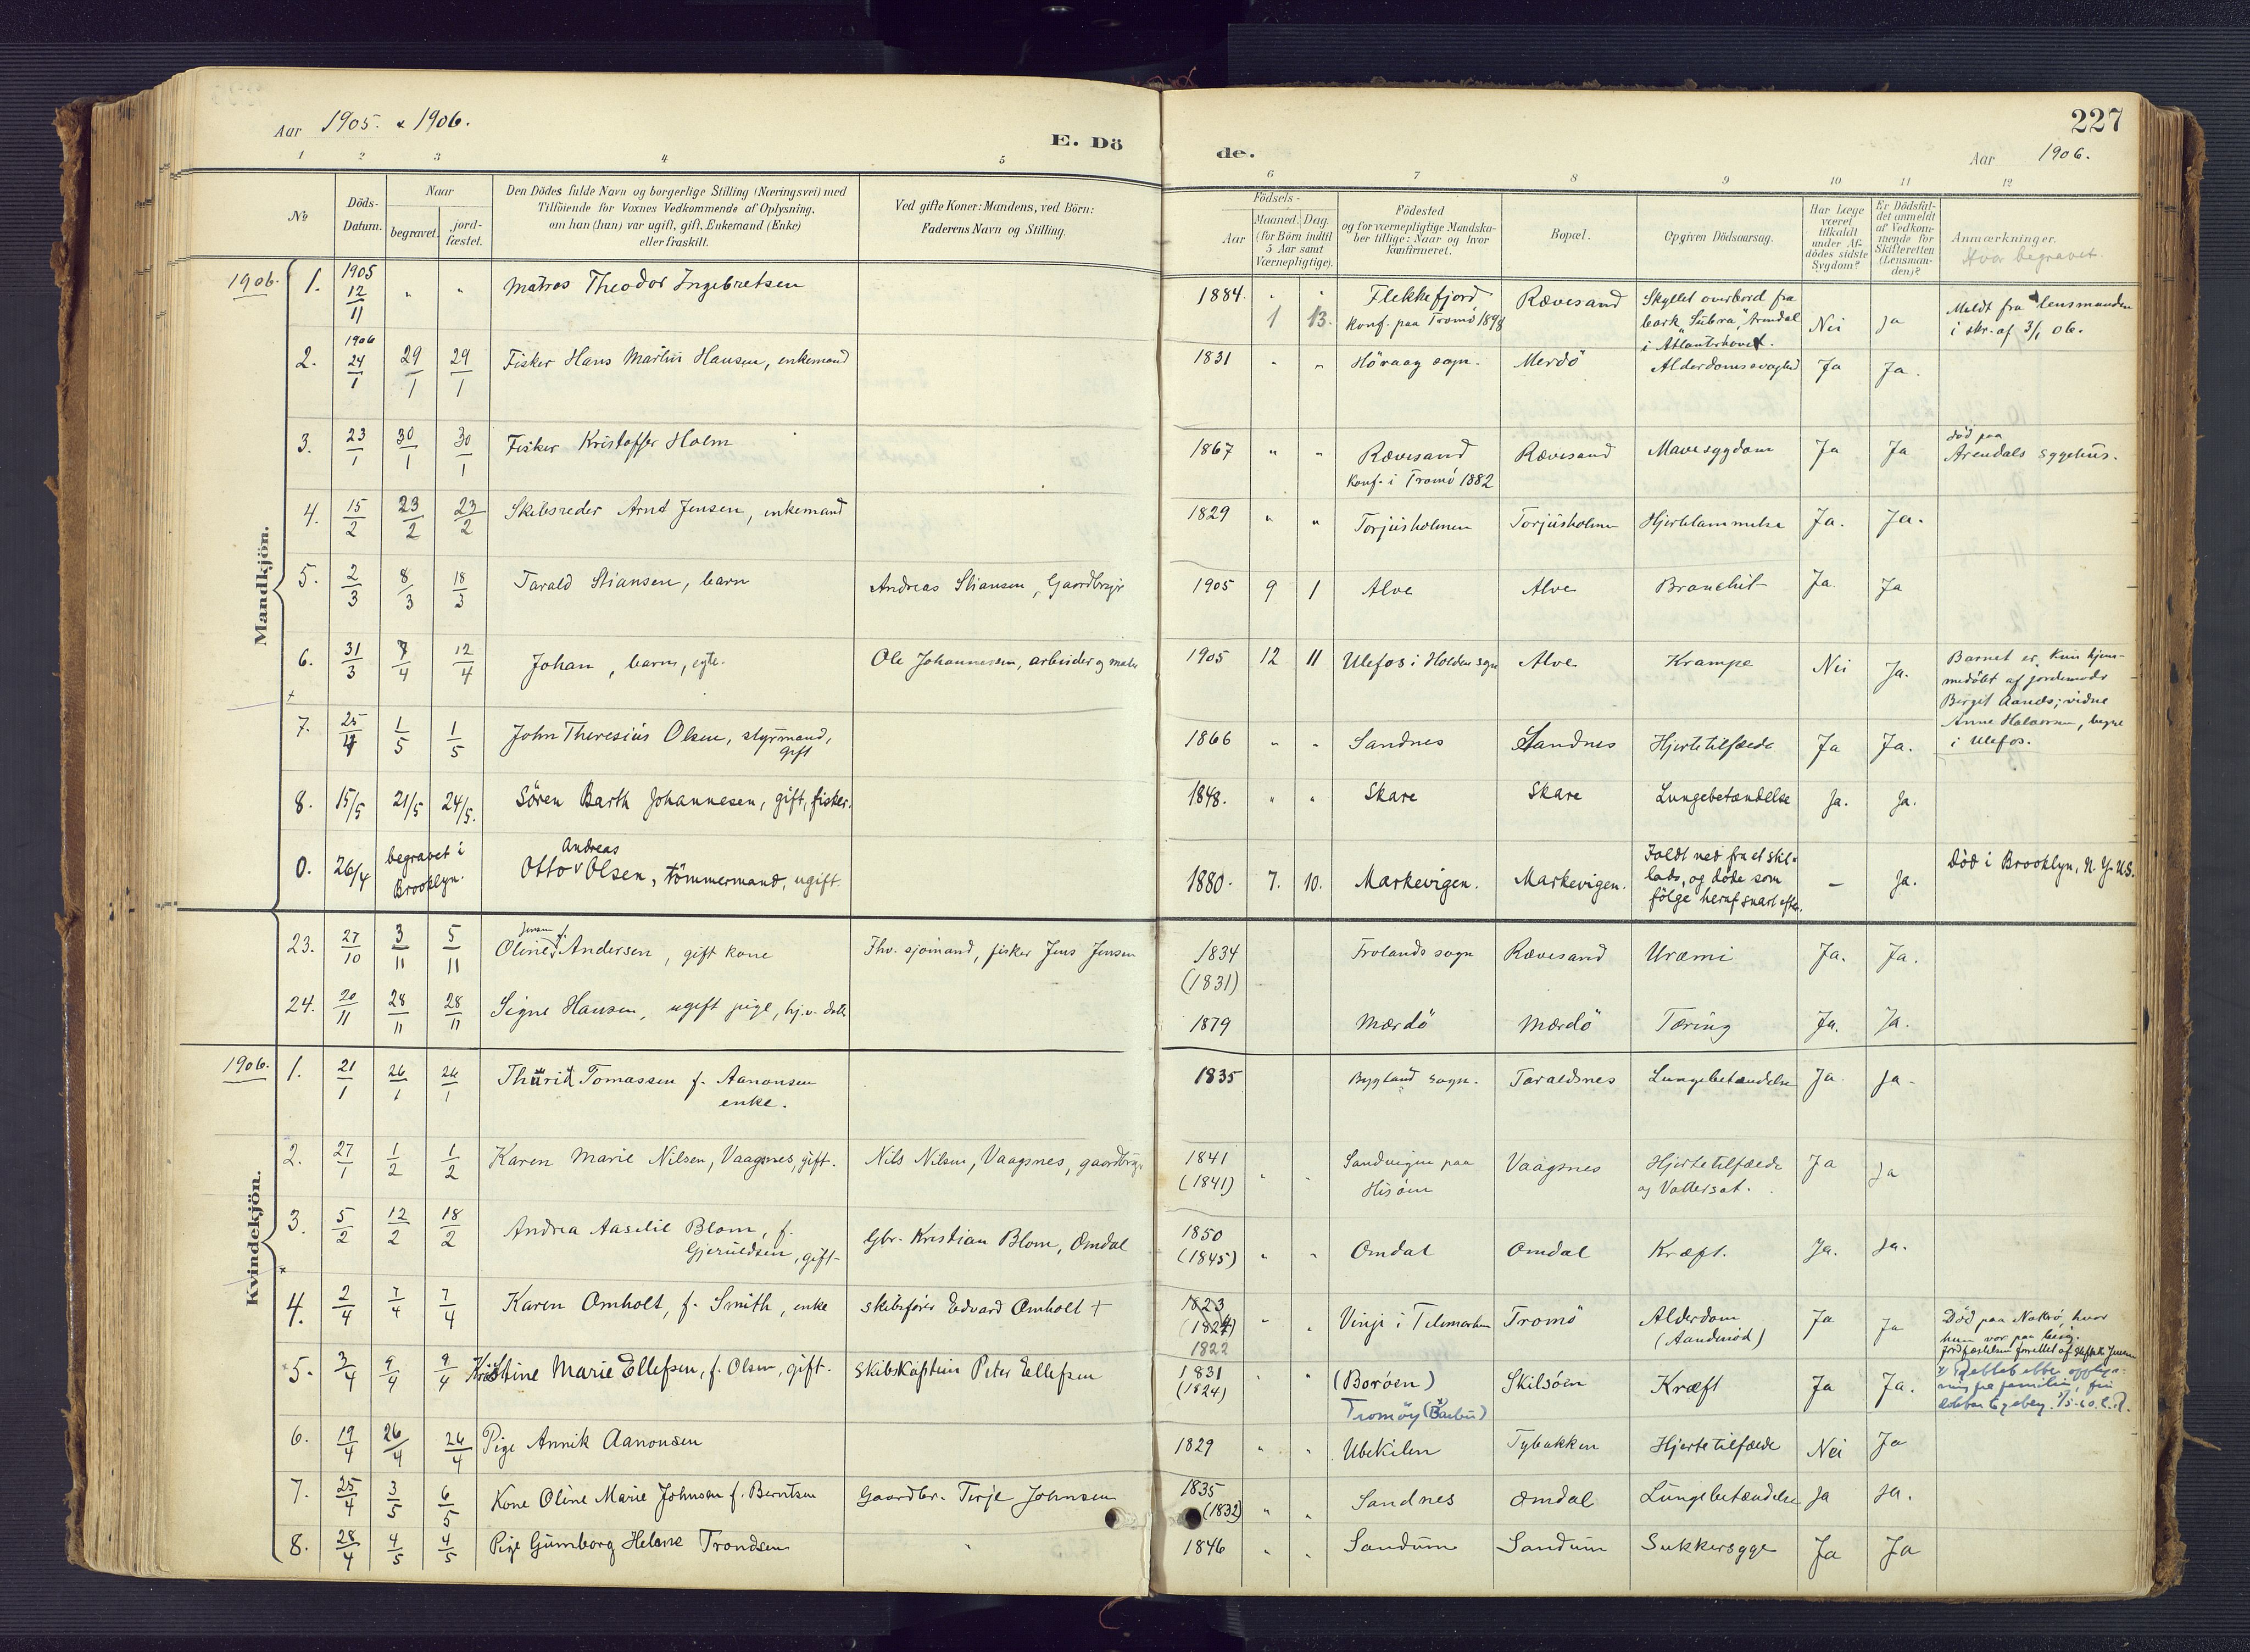 227
Aar 1905. & 1906.
E. Dö
de.
Aar 1906.
1 2 3 4 5 6 7 8 9 10 11 12
No
Döds-
Datum.
Naar
begravet.
jord-
fæstet.
Den Dödes fulde Navn og borgerlige Stilling (Næringsvei) med
Tilföiende for Voxnes Vedkommende af Oplysning,
om han (hun) var ugift, gift, Enkemand (Enke)
eller fraskilt.
Ved gifte Koner: Mandens, ved Börn:
Faderens Navn og Stilling.
Födsels-
Aar
Maaned. Dag.
(for Börn indtil
5 Aar samt
Værnepligtige).
Födested
og for værnepligtige Mandska-
ber tillige: Naar og hvor
konfirmeret.
Bopæl.
Opgiven Dödsaarsag.
Har Læge
været
tilkaldt
under Af-
dödes sidste
Sygdom?
Er Dödsfal-
det anmeldt
af Vedkom-
mende for
Skifteretten
(Lensman-
den)?
Anmærkninger.
Hvor begravet.
Mandkjön.
1906. 1. 1905 12/11 " " Matros Theodor Ingebretsen 1884. " " Flekkefjord Rævesand Skyllet overbord fra
1 13. Konf. paa Tromö 1898 bark "Subra", Arendal Nei Ja Meldt fra lensmanden
i Atlanterhavet. i skr. af 3/1 06.
2. 1906 24/1 29/1 29/1 Fisker Hans Martin Hansen, enkemand 1831 " " Hövaag sogn. Merdö Alderdomssvaghed Ja Ja.
3. 23/1 30/1 30/1 Fisker Kristoffer Holm 1867 " " Rævesand Rævesand Mavesygdom Ja Ja död paa
Konf. i Tromö 1882 Arendals sygehus.
4. 15/2 23/2 23/2 Skibsreder Arnt Jensen, enkemand 1829 " " Torjusholmen Torjusholmen Hjertelammelse Ja. Ja.
5. 2/3 8/3 18/3 Tarald Stiansen, barn Andreas Stiansen, Gaardbruger 1905 9 1 Alve Alve Bronchit Ja. Ja
6. 31/3 7/4 12/4 Johan, barn, egte. Ole Johannessen, arbeider og maler 1905 12 11 Ulefos i Holden sogn Alve Krampe Nei Ja. Barnet er kun hjem-
medöbt af jordemoder
Birgit Aanes; vidne
Anne Halvorsen, begge
i Ulefos.
7. 25/4 1/5 1/5 John Theresius Olsen, styrmand, 1866 " " Sandnes Sandnes Hjertetilfælde Ja Ja.
gift
8. 15/5 21/5 24/5. Sören Barth Johannesen, gift, fisker. 1848. " " Skare Skare Lungebetændelse Ja. Ja.
0. 26/4 begravet i
Brooklyn.
Andreas
Otto Olsen, tömmermand, ugift 1880. 7. 10. Markevigen. Markevigen. Faldt ned fra et stil-
lads, og döde som
fölge heraf snart efter. – Ja. Död i Brooklyn, N. Y. U.S.
Jensen f.
23. 27/10 3/11 5/11 Oline Andersen, gift kone Fhv. sjömand, fisker Jens Jensen 1834 Frolands sogn Rævesand Uræmi Ja. Ja.
(1831)
24. 20/11 28/11 28/11 Signe Hansen, ugift pige, hj.v. datter 1879 Mærdö Mærdö Tæring Ja. Ja.
Kvindekjön.
1906. 1. 21/1 26/1 26/1 Thurid Tomassen f. Aanonsen 1835 Bygland sogn. Taraldsnes Lungebetændelse Ja. Ja.
enke.
2. 27/1 1/2 1/2 Karen Marie Nilsen, Vaagsnes, gift. Nils Nilsen, Vaagsnes, gaardbruger 1841 Sandvigen paa Vaagsnes Hjertetilfælde Ja Ja
(1841) " " Hisöen og Vattersot.
3. 5/2 12/2 18/2 Andrea Aaselie Blom, f. Gbr. Kristian Blom, Omdal 1850
Gjeruldsen, gift (1845) " " Omdal Omdal Kræft. Ja. Ja.
4. 2/4 7/4 7/4 Karen Omholt, f. Smith, enke Skibsförer Edvard Omholt + 1823
(1824) " " Vinje i Telemarken Tromö Alderdom Ja Ja Död paa Naktö, hvor
1822 (Aandenöd) hun var paa besög.
Jordfæstelsen forrettet af Jensen
5. 3/4 9/4 9/4 Kristine Marie Ellefsen, f. Olsen, gift. Skibskaptein Peter Ellefsen 1831 " " (Boröen) Skilsöen Kræft Ja Ja.
(1824) Tromöy (Barbu)
6. 19/4 26/4 26/4 Pige Annik Aanonsen 1829 " " Ubekilen Tybakken Hjertetilfælde Nei Ja
7. 25/4 3/5 6/5 Kone Oline Marie Johnsen f. Berntsen Gaardbr. Terje Johnsen 1835
(1832) " " Sandnes Omdal Lungebetændelse Ja Ja.
8. 28/4 4/5 4/5 Pige Gumborg Helene Trondsen 1846 " " Sandum Sandum Sukkersyge Ja Ja